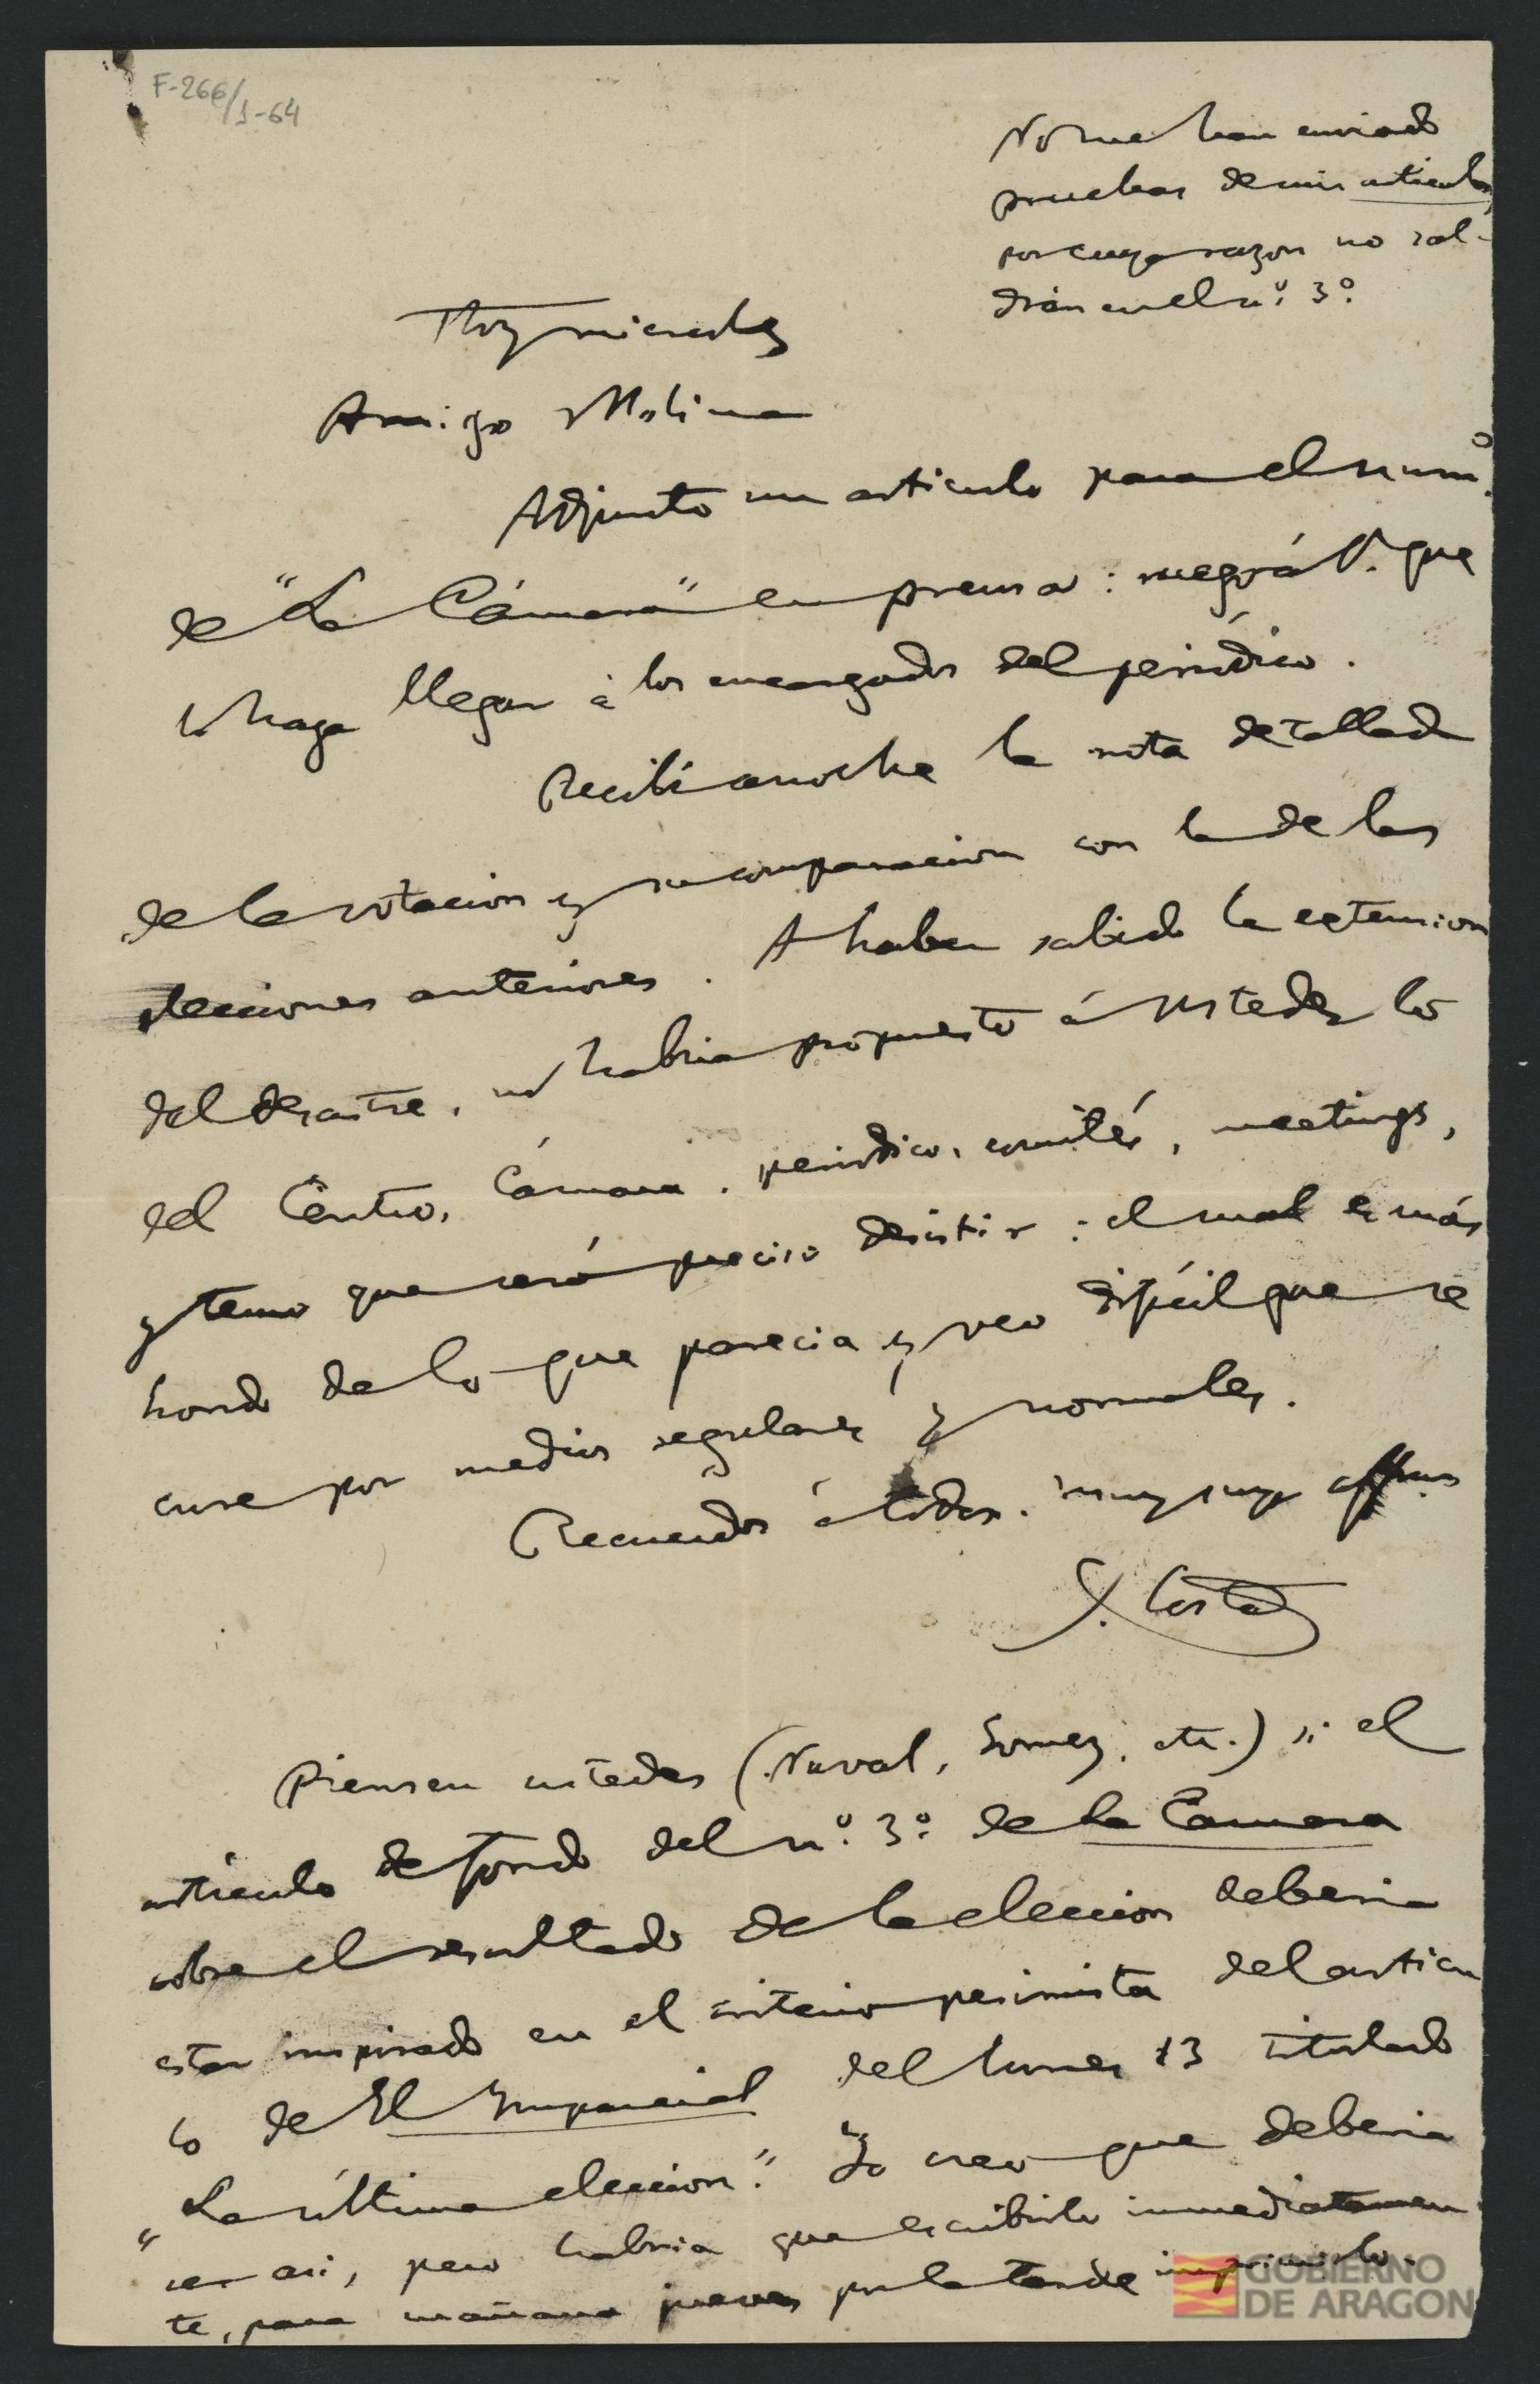 F-266/1-64
No me han enviado
pruebas de mis articulos,
por cuya razon no sal-
drán en el nº. 3º.
Hoy miercoles
Amigo Molina
Adjunto un articulo para el númº.
de "La Cámara" en prensa: ruego á V. que
lo haga llegar á los encargados del periódico.
Recibi anoche la nota detallada
de la votacion y su comparacion con la de las
elecciones anteriores. A haber sabido la extension
del desastre, no habria propuesto á ustedes lo
del Centro, Cámara, periódico, comités, meetings,
y temo que será preciso desistir: el mal es más
hondo de lo que parecia y veo dificil que se
cure por medios regulares y normales.
Recuerdos á todos. muy suyo affmo
J. Costa
Piensen ustedes (Naval, Gomez, etc.) si el
articulo de fondo del nº. 3º. de La Camara
sobre el resultado de la eleccion deberia
estar inspirado en el criterio pesimista del articu
lo de El Imparcial del lunes 13 titulado
"La última eleccion". Yo creo que deberia
ser asi, pero habria que escribirlo inmediatamen
te, para mañana jueves por la tarde imprimirlo.
GOBIERNO
DE ARAGON